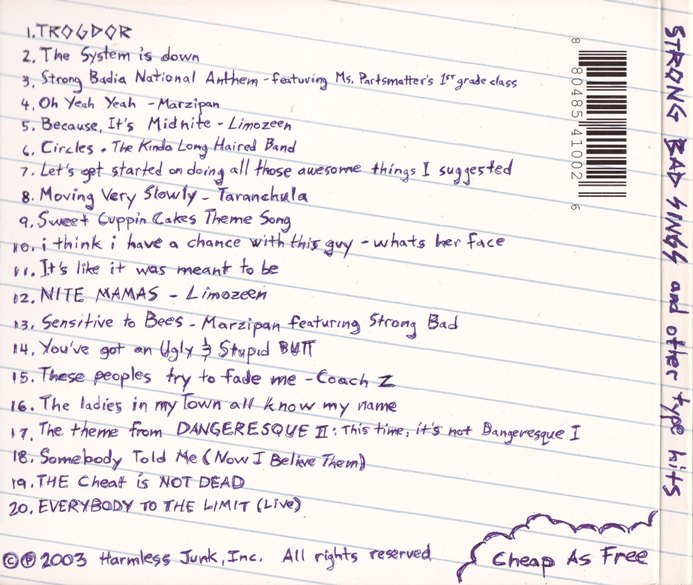 1. TROGDOR
2. The System is down
3. Strong Badia National Anthem - featuring Ms. Partsmatter's 1st grade class
4. Oh Yeah Yeah - Marzipan
5. Because, It's Midnite - Limozeen
6. Circles - The Kinda Long Haired Band
7. Let's get started on doing all those awesome things I suggested
8. Moving Very Slowly - Taranchula
9. Sweet Cuppin Cakes Theme Song
10. i think i have a chance with this guy - whats her face
11. It's like it was meant to be
12. NITE MAMAS - Limozeen
13. Sensitive to Bees - Marzipan featuring Strong Bad
14. You've got an Ugly & Stupid BUTT
15. These peoples try to fade me - Coach Z
16. The ladies in my Town all know my name
17. The theme from DANGERESQUE II: This time, it's not Dangeresque I
18. Somebody Told Me (Now I Believe Them)
19. THE Cheat is NOT DEAD
20. EVERYBODY TO THE LIMIT (Live)
© ℗ 2003 Harmless Junk, Inc. All rights reserved
Cheap As Free
8 80485 41002 6
STRONG BAD SINGS and other type hits